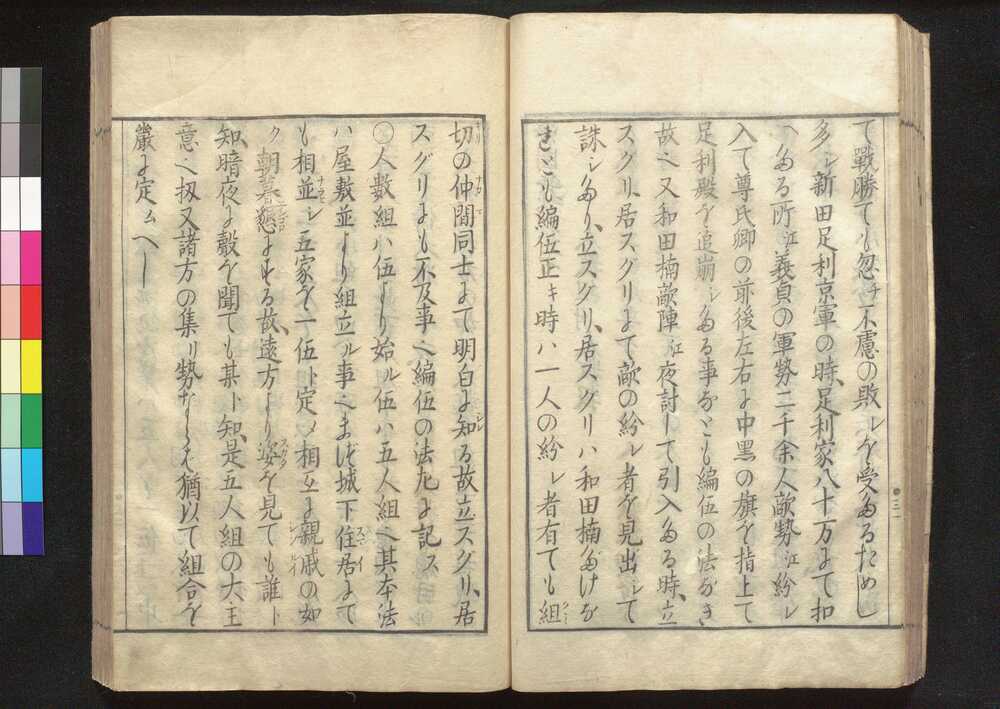 て戰勝ても忽チ不慮の敗レを受あるためし
多シ新田足利京軍の時、足利家八十万よて扣
へある所江義貞の軍勢二千余人敵勢江紛レ
入て尊氏卿の前後左右よ中黒の旗を指上て
足利殿を追崩シある事なとも編伍の法なき
故也又和田楠敵陣江夜討して引入ある時、立
スグリ、居スグリよて敵の紛レ者を見出して
誅シあり、立スグリ、居スグリハ和田楠
せとも編伍正キ時ハ一人の紛レ者有ても組
三
切の仲間同士よて明白よ知る故立スグリ、居
スグリよも不及事也編伍の法九よ記ス
〇人數組ハ伍より始ル伍ハ五人組也其本法
ハ屋敷並より組立ル事也まづ城下住居よて
も相並シ五家を一伍ト定メ相互よ親戚の如
ク朝暮懇よする故、遠方より姿を見ても誰ト
知、暗夜よ聲を聞ても某ト知、是五人組の大主
意也扨又諸方の集リ勢ならも猶以て組合を
嚴よ定ムへし